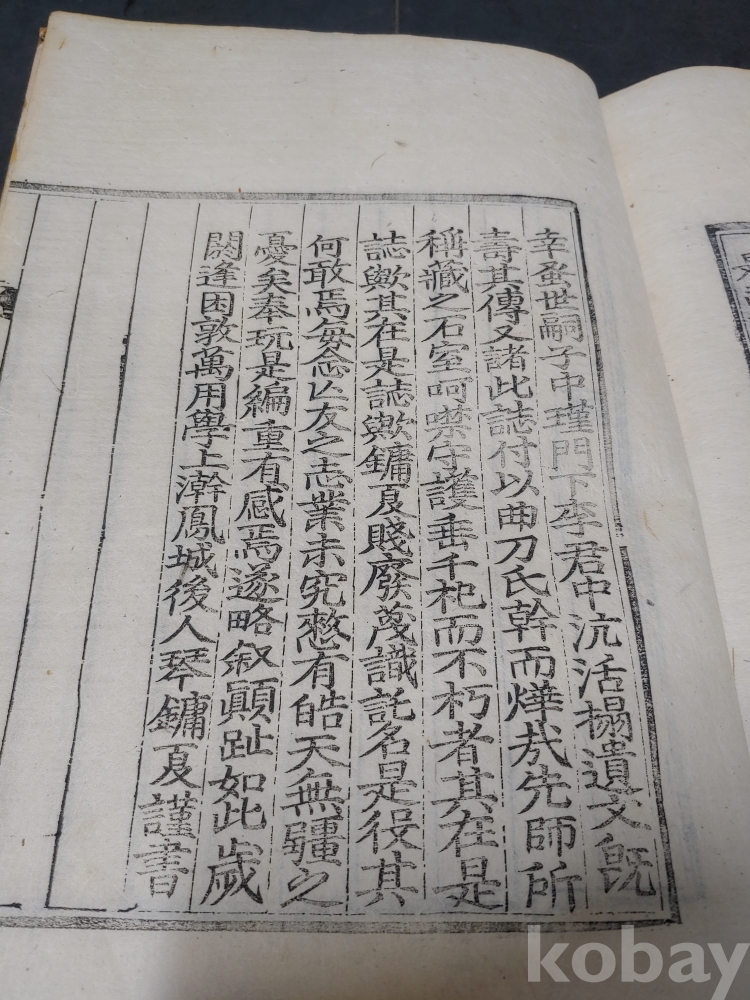 幸蚤世嗣子中瑾門下李君中沆活榻遺文旣
壽其傳又諸此誌付以曲刀氏幹而燁㢤先師所
稱藏之石室呵噤守護垂千祀而不朽者其在是
誌歟其在是誌歟鏞夏賤廢蔑識託名是役其
何敢焉每念亾友之志業未究憗有皓天無疆之
憂矣奉玩是編重有感焉遂略叙顚趾如此歲
閼逢困敦萬用學上澣鳳城後人琴鏞夏謹書
kobay